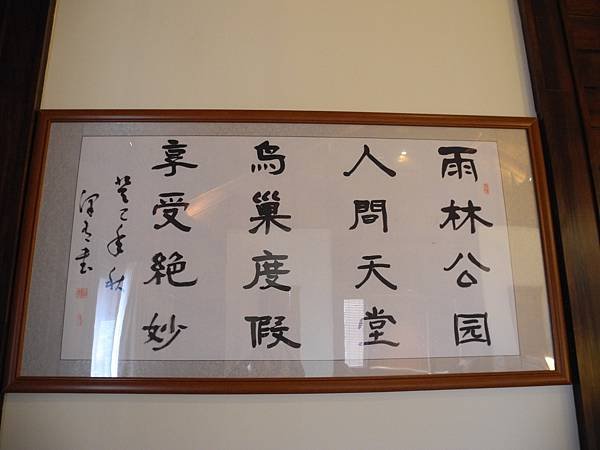 雨林公园
人間天堂
鸟巢度假
享受絕妙
癸巳年秋